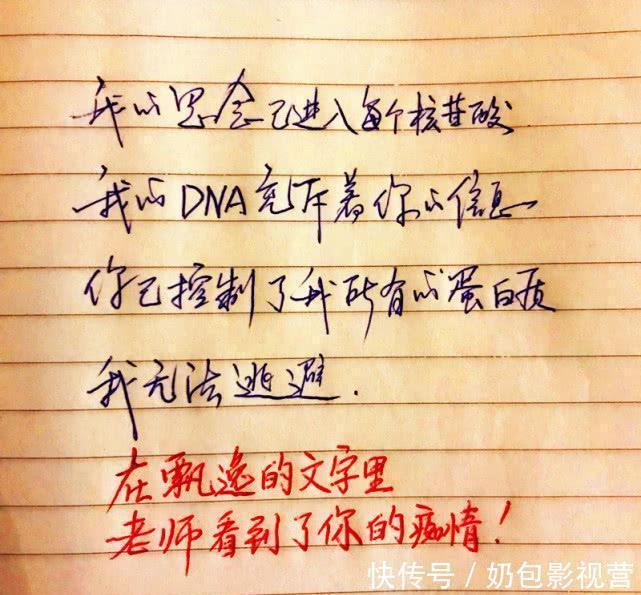 我的思念已进入每个核苷酸
我的DNA充斥着你的信息
你已控制了我所有的蛋白质
我无法逃避.
在飘逸的文字里
老师看到了你的痴情!
快传号/奶包影视营